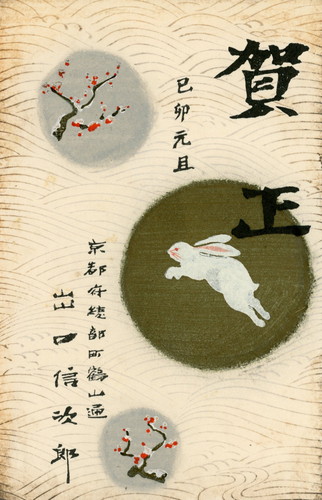 賀正
己卯元旦
京都府綾部町鶴山通
出口信次郎